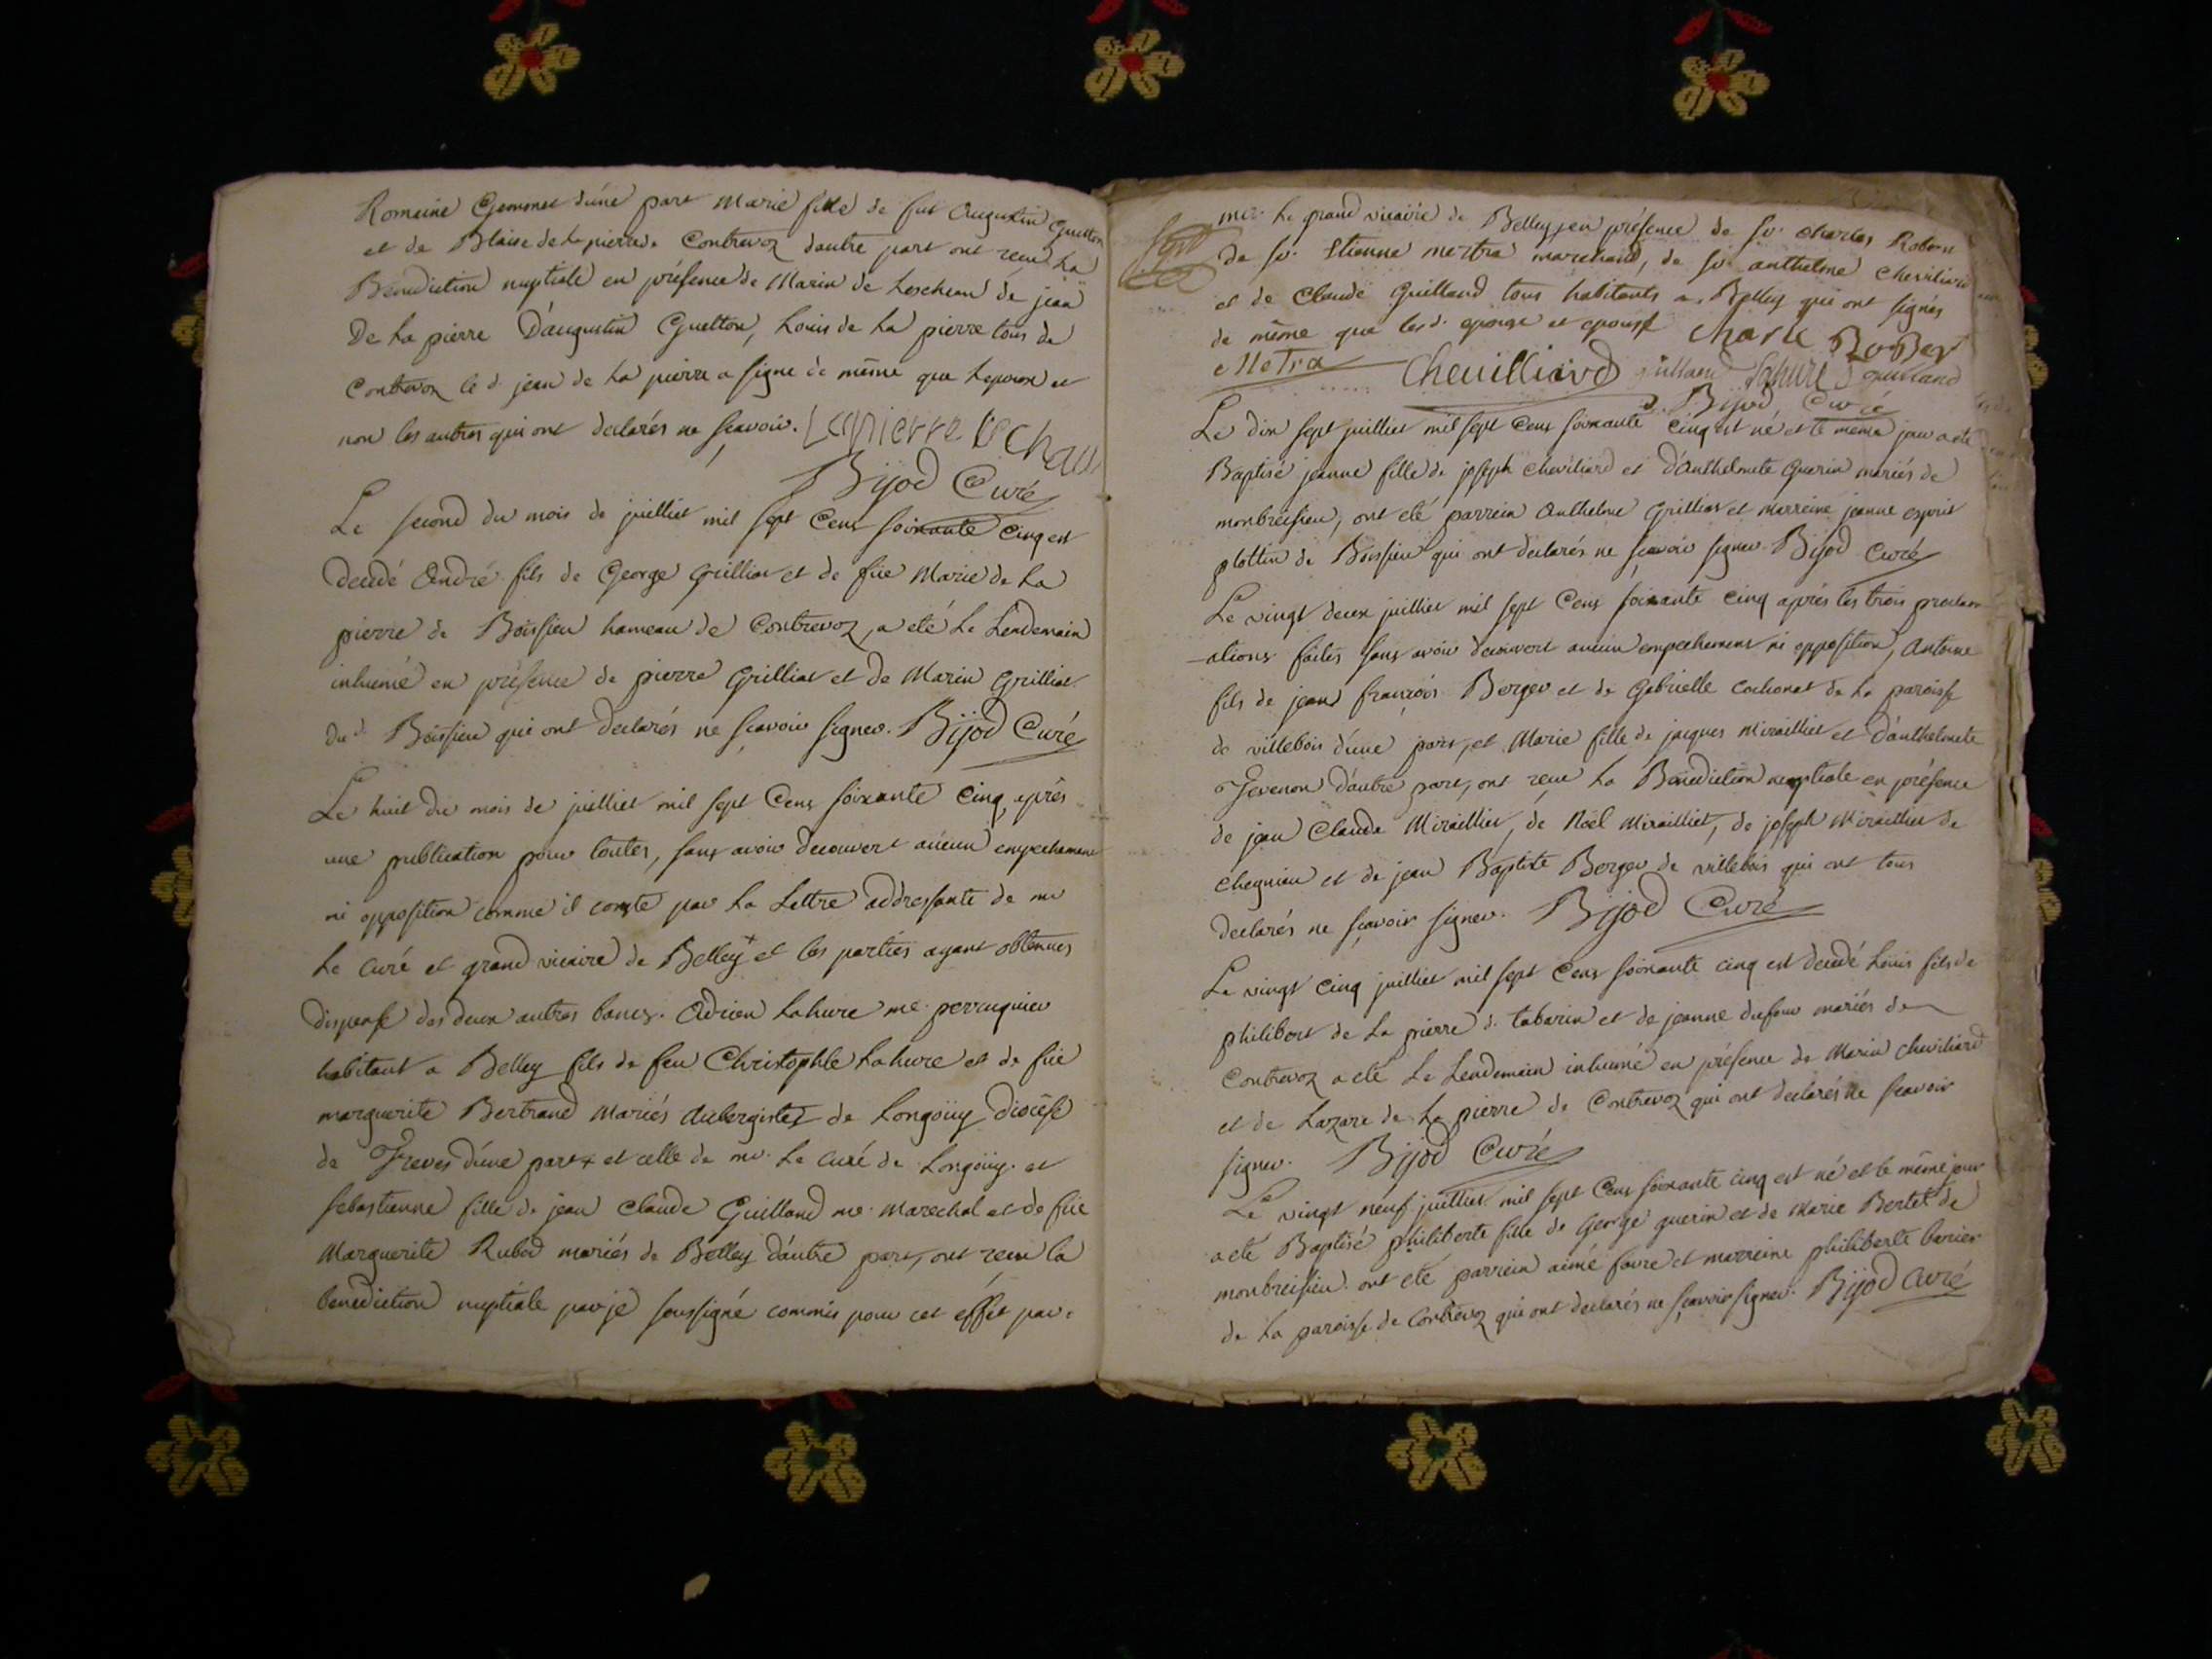 Romaine Gemmet d'une part Marie fille de fut Augustin Guetton
et de Blaise de la pierre de Contrevoz dautre part ont recu La
Benediction nuptiale en présence de Marin de Leschaud de jean
De La pierre D'augustin Guetton, Louis de La pierre tous de
Contrevoz le d. jean de La pierre a signe de même que Lepoux et
non les autres qui ont declarés ne sçavoir. Lapierre Lechau
Bijod Curé
Le second du mois de juilliet mil sept Cens soixante cinq est
decedé André fils de George Grilliat et de füe Marie de La
pierre de Boissieu hameau de Contrevoz, a eté Le Lendemain
inhumé en présence de pierre Grilliat et de Marin Grilliat
du d. Boissieu qui ont declarés ne sçavoir signer. Bijod Curé
Le huit du mois de juilliet mil sept Cens soixante cinq, aprés
une publication pour toutes, sans avoir decouvert aücun empechement
ni opposition comme il conste par La Lettre addressante de mr
Le curé et grand vicaire de Belley + et les parties ayant obtenües
dispense des deux autres bancs. Adrien Lahure me. perruquier
habitant a Belley fils de feu Christophle Lahure et de füe
marguerite Bertrand Mariés Aubergistes de Longöüy diocése
de Treves d'une part + et celle de mr. Le curé de Longöüy. et
sebastienne fille de jean Claude Guilland me. Marechal et de füe
Marguerite Rubod mariés de Belley d'autre part, ont recu la
benediction nuptiale par je soussigné commis pour cet effet par
mr. Le grand vicaire de Belley, en présence de sr. Charles Robert
de sr. Etienne mettra marchand, de sr. anthelme Chevilliard
et de Claude Guilland tous habitants a Belley qui ont signés
de même que lesd. epoux et epouse Charle RoBer
Metra Cheuilliard guilland Lahure S guilland
Bijod Curé
Le dix sept juilliet mil sept Cens soixante cinq est né et le même jour a eté
Baptisé jeanne fille de joseph Chevilliard et d'Anthelmete Guerin mariés de
monbreisieu, ont eté parrein Anthelme Grilliat et marreine jeanne esprit
plottin de Boissieu qui ont declarés ne sçavoir signer. Bijod curé
Le vingt deux juilliet mil sept Cens soixante cinq aprés les trois proclam
-ations faites sans avoir decouvert aucun empechement ni opposition, Antoine
fils de jean françois Berger et de Gabrielle Cochonat de La paroisse
de villebois d'une part, et Marie fille de jacques Mirailliet et d'anthelmete
Tevenon d'autre part, ont recu La Benediction nuptiale en présence
de jean Claude Mirailliet, de Noël Mirailliet, de joseph Mirailliet de
Chegnieu et de jean Baptiste Berger de villebois qui ont tous
declarés ne sçavoir signer. Bijod Curé
Le vingt cinq juilliet mil sept Cens soixante cinq est decedé Loüis fils de
philibert de La pierre d. tabarin et de jeanne dufour mariés de
Contrevoz a eté Le Lendemain inhumé en présence de Marin Chevilliard
et de Lazare de La pierre de Contrevoz qui ont declarés ne sçavoir
signer. Bijod Curé
Le vingt neuf juilliet mil sept Cens soixante cinq est né et le même jour
a eté Baptisé philiberte fille de George guerin et de Marie Bertet de
monbreisieu. ont eté parrein aimé favre et marreine philiberte
de La paroisse de Contrevoz qui ont declarés ne sçavoir signer. Bijod Curé